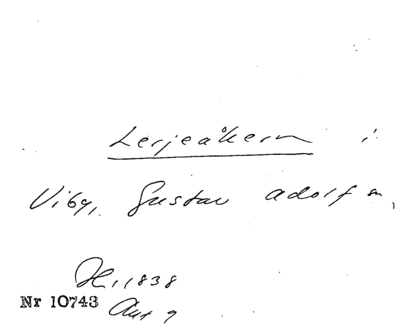 Lerjeåkern i
Viby, Gustav Adolf sn,
H. 1838
Nr 10743